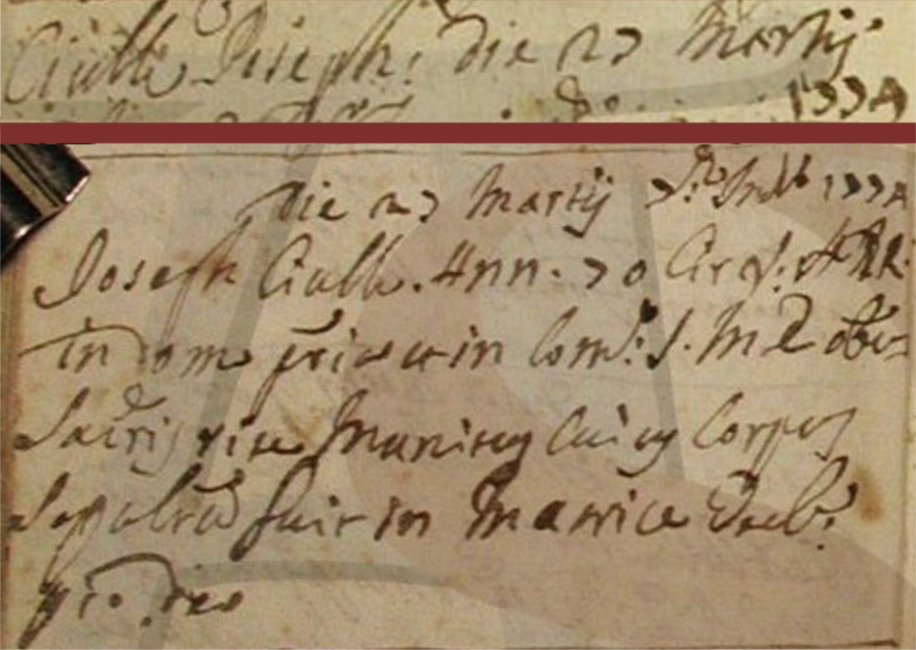 Ciulla Joseph: die 27 Martij
1774
Die 27 Martij 7.e Ind. 1774
Joseph Ciulla. Ann. 70 Circ.
in Dom priva in Com. S. M. D. obi=
Sacris rite Munitus Cuius Corpus
Sepultus fuit in Matrice Eccl.